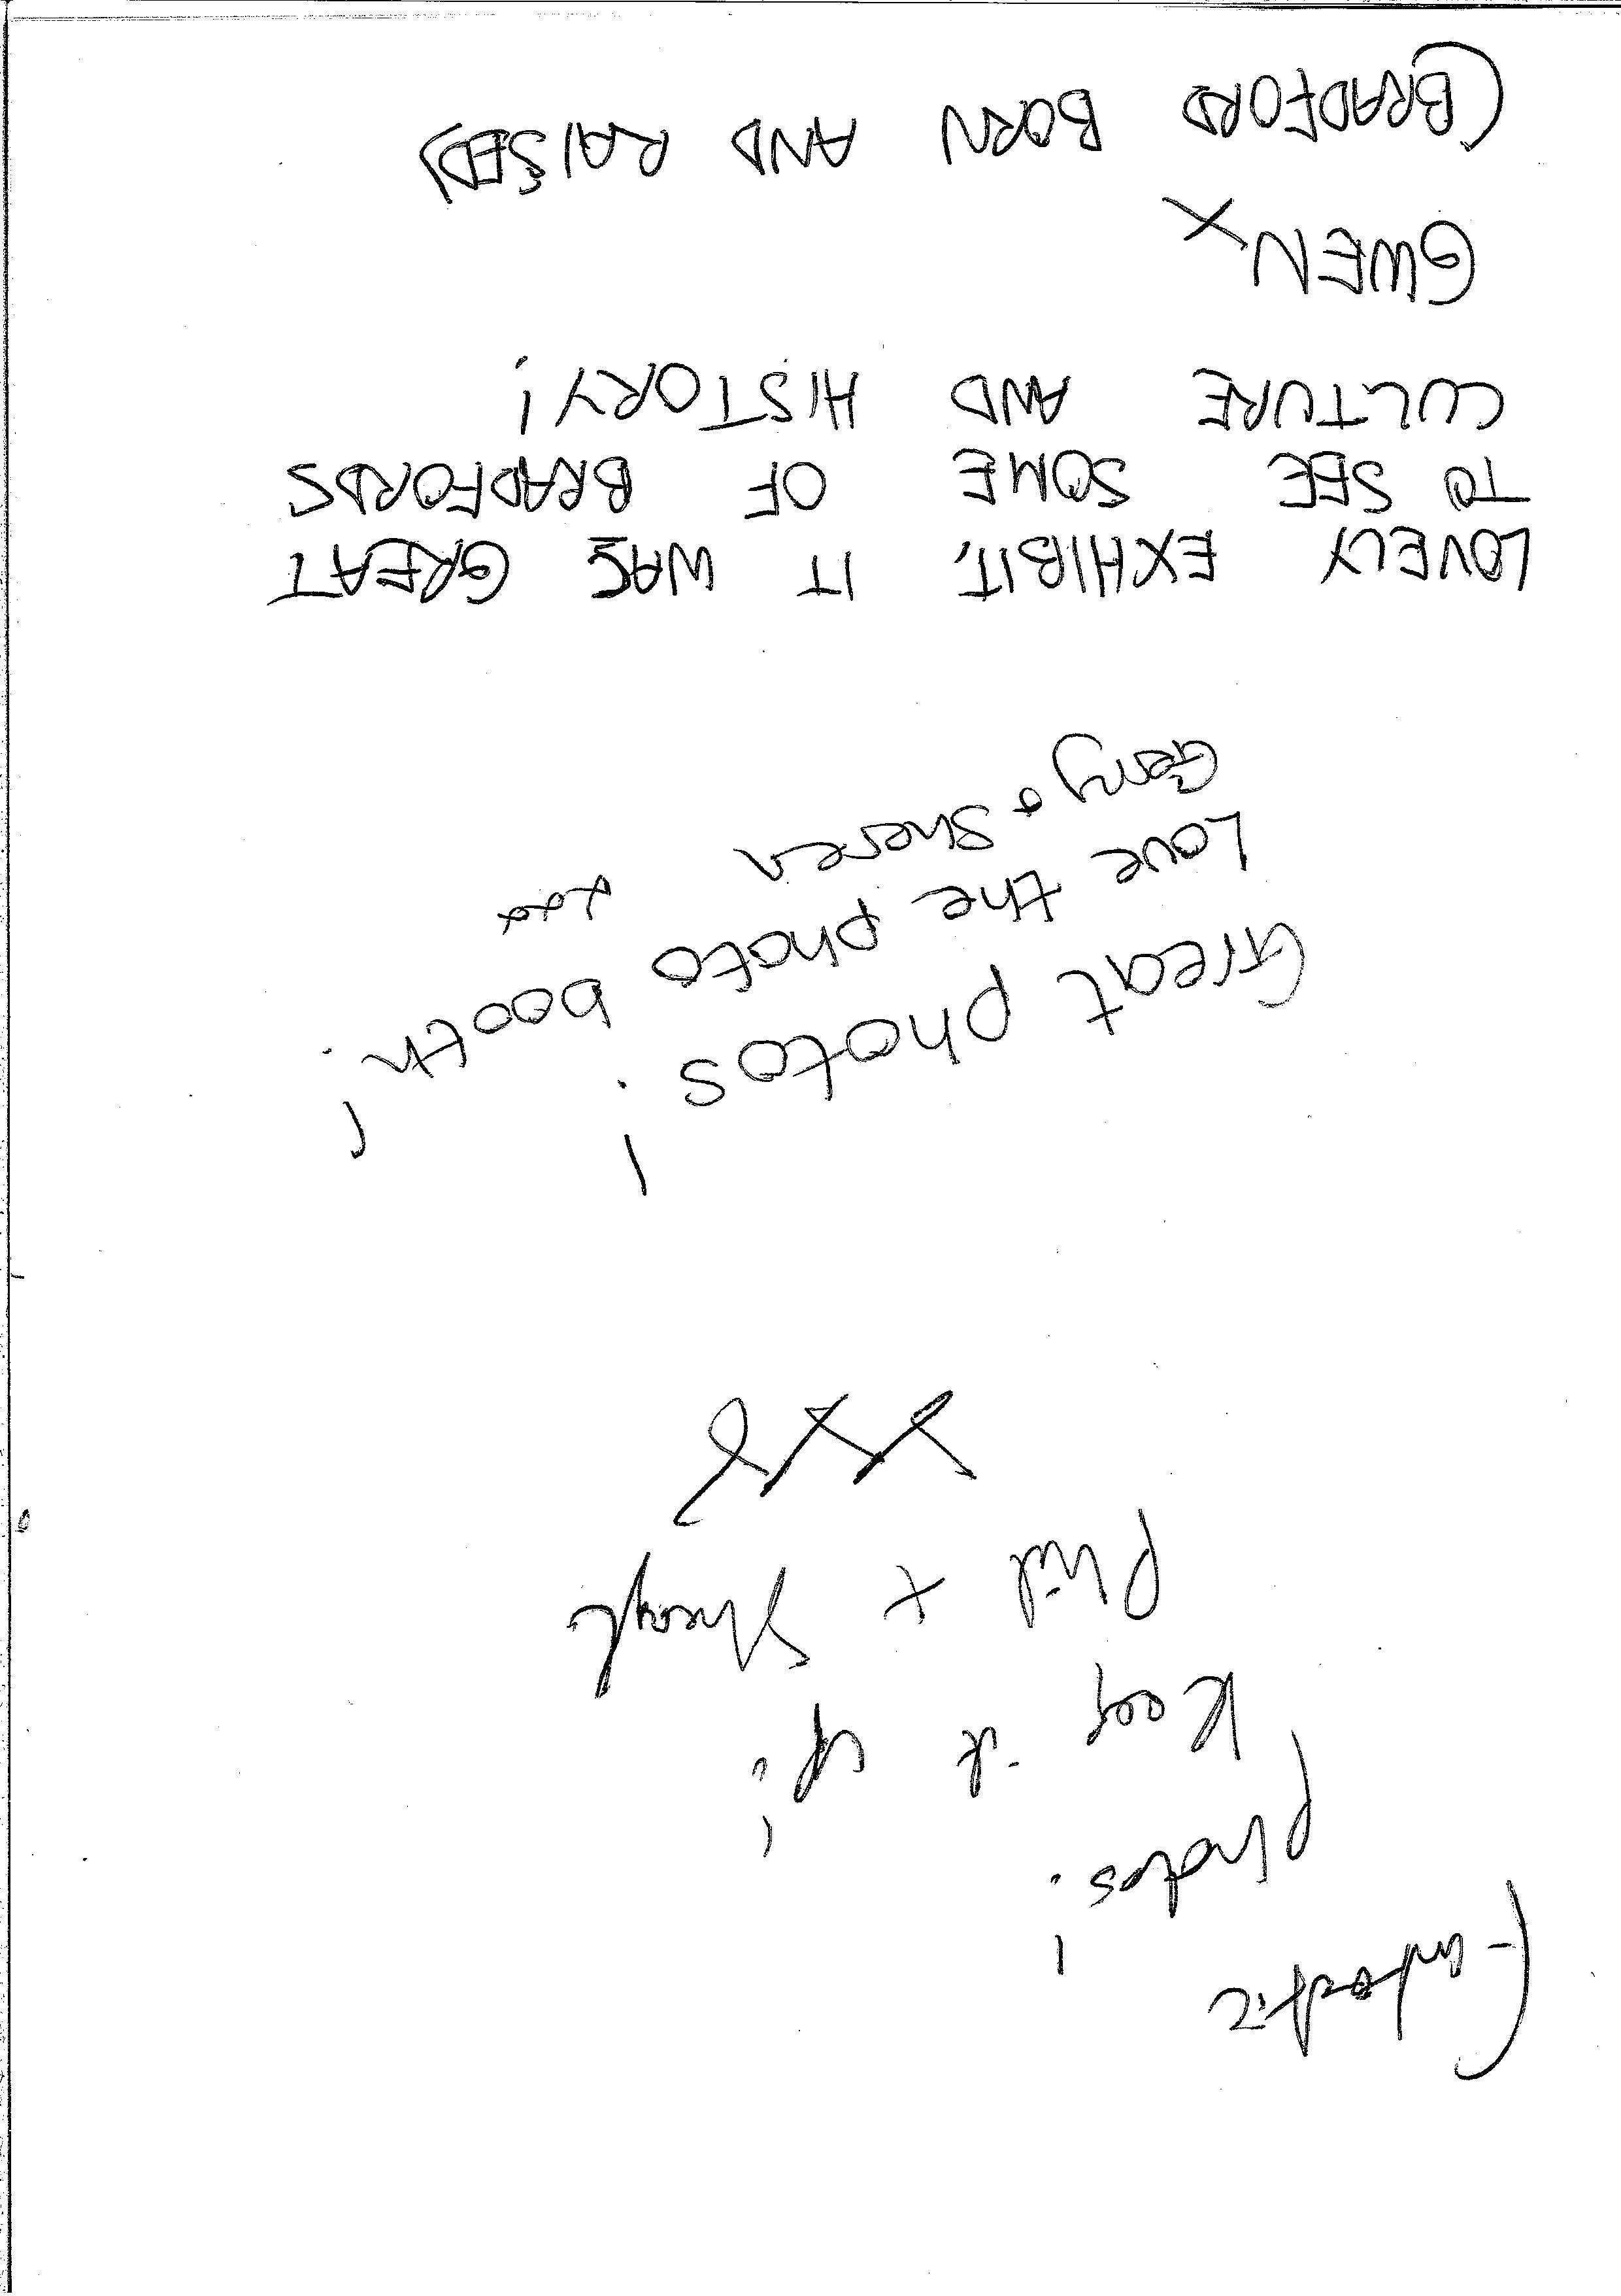 Fantastic
photos!
Keep it up!
Phil +
xxx
Great photos!
Love the photo booth!
Gerry + Sheren xxx
LOVELY EXHIBIT, IT WAS GREAT
TO SEE SOME OF BRADFORDS
CULTURE AND HISTORY!
GWEN x
(BRADFORD BORN AND RAISED)